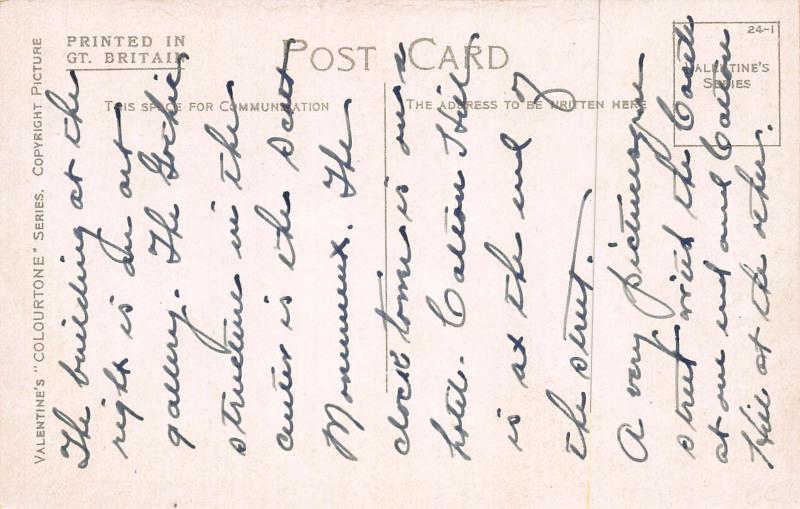 PRINTED IN
GT. BRITAIN
POST CARD
24-1
VALENTINE'S
SERIES
THIS SPACE FOR COMMUNICATION
THE ADDRESS TO BE WRITTEN HERE
VALENTINE'S "COLOURTONE" SERIES. COPYRIGHT PICTURE
The building at the
right is an art
gallery. The Gothic
structure in the
center is the Scott
Monument. The
clock tower is our
hotel. Calton Hill
is at the end of
the street.
A very picturesque
street with the Castle
at one end and Calton
Hill at the other.